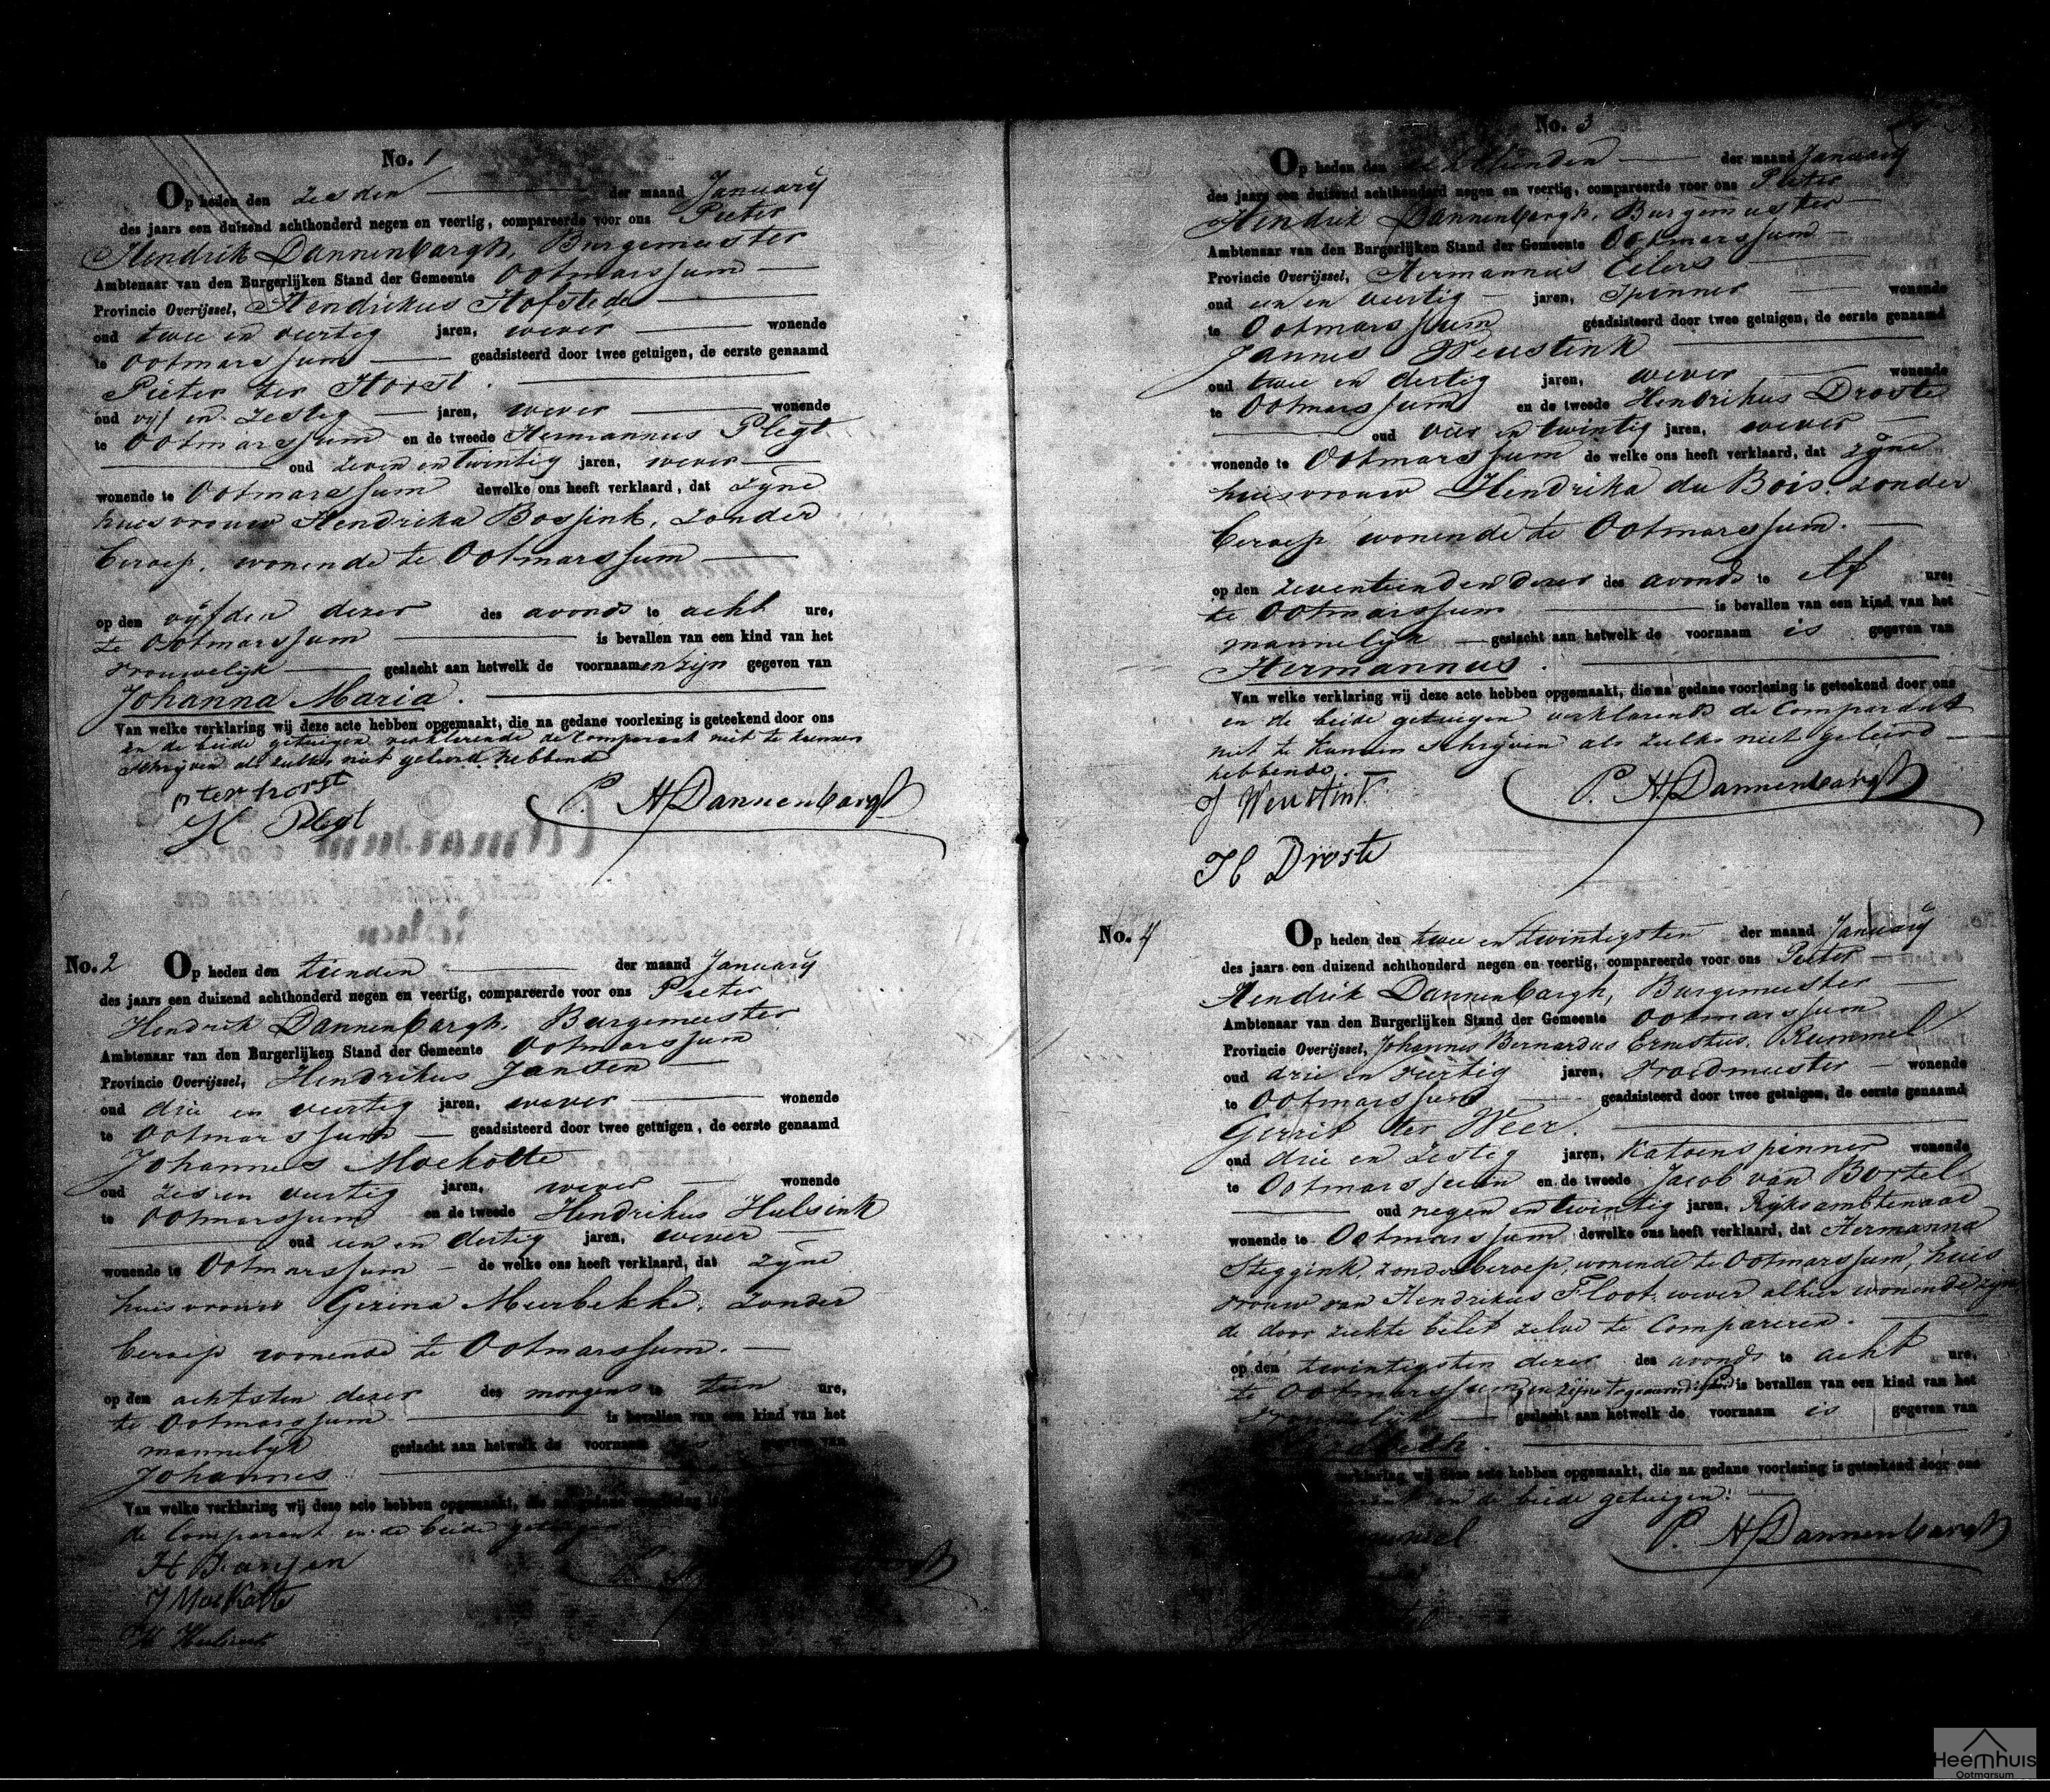 No. 1
Op heden den zesden der maand January
des jaars een duizend achthonderd negen en veertig, compareerde voor ons Pieter
Hendrik Dannenbargh, Burgemeester
Ambtenaar van den Burgerlijken Stand der Gemeente Ootmarssum
Provincie Overijssel, Hendrikus Hofstede
oud twee en veertig jaren, wever wonende
te Ootmarssum geadsisteerd door twee getuigen, de eerste genaamd
Pieter ter Horst.
oud vijf en zestig jaren, wever wonende
te Ootmarssum en de tweede Hermannus Plegt
oud zeven en twintig jaren, wever
wonende te Ootmarssum dewelke ons heeft verklaard, dat zyne
huisvrouw Hendrika Bossink, zonder
beroep, wonende te Ootmarssum
op den vijfden dezer des avonds te acht ure,
te Ootmarssum is bevallen van een kind van het
vrouwelijk geslacht aan hetwelk de voornaamen zijn gegeven van
Johanna Maria.
Van welke verklaring wij deze acte hebben opgemaakt, die na gedane voorlezing is geteekend door ons
en de beide getuigen verklarende de Comparant niet te kunnen
schrijven als zulks niet geleerd hebbende
p ter horst
H. Plegt
P. H. Dannenbargh
No. 2
Op heden den tienden der maand January
des jaars een duizend achthonderd negen en veertig, compareerde voor ons Pieter
Hendrik Dannenbargh, Burgemeester
Ambtenaar van den Burgerlijken Stand der Gemeente Ootmarssum
Provincie Overijssel, Hendrikus Jansen
oud drie en veertig jaren, wever wonende
te Ootmarssum geadsisteerd door twee getuigen, de eerste genaamd
Johannes Moekotte
oud zes en veertig jaren, wever wonende
te Ootmarssum en de tweede Hendrikus Hulsink
oud een en dertig jaren, wever
wonende te Ootmarssum de welke ons heeft verklaard, dat zyne
huisvrouw Gezina Meerbekke, zonder
beroep wonende te Ootmarssum.
op den achtsten dezer des morgens te tien ure,
te Ootmarssum is bevallen van een kind van het
mannelijk geslacht aan hetwelk de voornaam is gegeven van
Johannes.
Van welke verklaring wij deze acte hebben opgemaakt, die na gedane voorlezing is
de Comparant en de beide getuigen
H Jansen
J Moekotte
H Hulsink
No. 3
Op heden den der maand January
des jaars een duizend achthonderd negen en veertig, compareerde voor ons Pieter
Hendrik Dannenbargh, Burgemeester
Ambtenaar van den Burgerlijken Stand der Gemeente Ootmarssum
Provincie Overijssel, Hermannus Eilers
oud een en veertig jaren, Spinner wonende
te Ootmarssum geadsisteerd door twee getuigen, de eerste genaamd
Jannes Weustink
oud twee en dertig jaren, wever wonende
te Ootmarssum en de tweede Hendrikus Droste
oud vier en twintig jaren, wever
wonende te Ootmarssum de welke ons heeft verklaard, dat zyne
huisvrouw Hendrika du Bois, zonder
beroep wonende te Ootmarssum.
op den zeventienden dezer des avonds te elf ure,
te Ootmarssum is bevallen van een kind van het
mannelijk geslacht aan hetwelk de voornaam is gegeven van
Hermannus.
Van welke verklaring wij deze acte hebben opgemaakt, die na gedane voorlezing is geteekend door ons
en de beide getuigen verklarende de Comparant
niet te kunnen schrijven als zulks niet geleerd
hebbende.
J Weustink
P. H. Dannenbargh
H Droste
No. 4
Op heden den twee en twintigsten der maand January
des jaars een duizend achthonderd negen en veertig, compareerde voor ons Pieter
Hendrik Dannenbargh, Burgemeester
Ambtenaar van den Burgerlijken Stand der Gemeente Ootmarssum
Provincie Overijssel, Johannes Bernardus Ernestus Rummel
oud drie en veertig jaren, Vroedmeester wonende
te Ootmarssum geadsisteerd door twee getuigen, de eerste genaamd
Gerrit ter Weer.
oud drie en zestig jaren, Katoenspinner wonende
te Ootmarssum en de tweede Jacob van Bortel
oud negen en twintig jaren, Ryksambtenaar
wonende te Ootmarssum dewelke ons heeft verklaard, dat Hermanna
Steggink, zonder beroep, wonende te Ootmarssum, huis
vrouw van Hendrikus Floot, wever alhier wonende zyn
de door ziekte belet zelve te Compareren.
op den twintigsten dezer des avonds te acht ure,
te Ootmarssum, in zijne tegenwoordigheid is bevallen van een kind van het
vrouwelijk geslacht aan hetwelk de voornaam is gegeven van
verklaring wij deze acte hebben opgemaakt, die na gedane voorlezing is geteekend door ons
en de beide getuigen.
P. H. Dannenbargh
Heemhuis
Ootmarsum